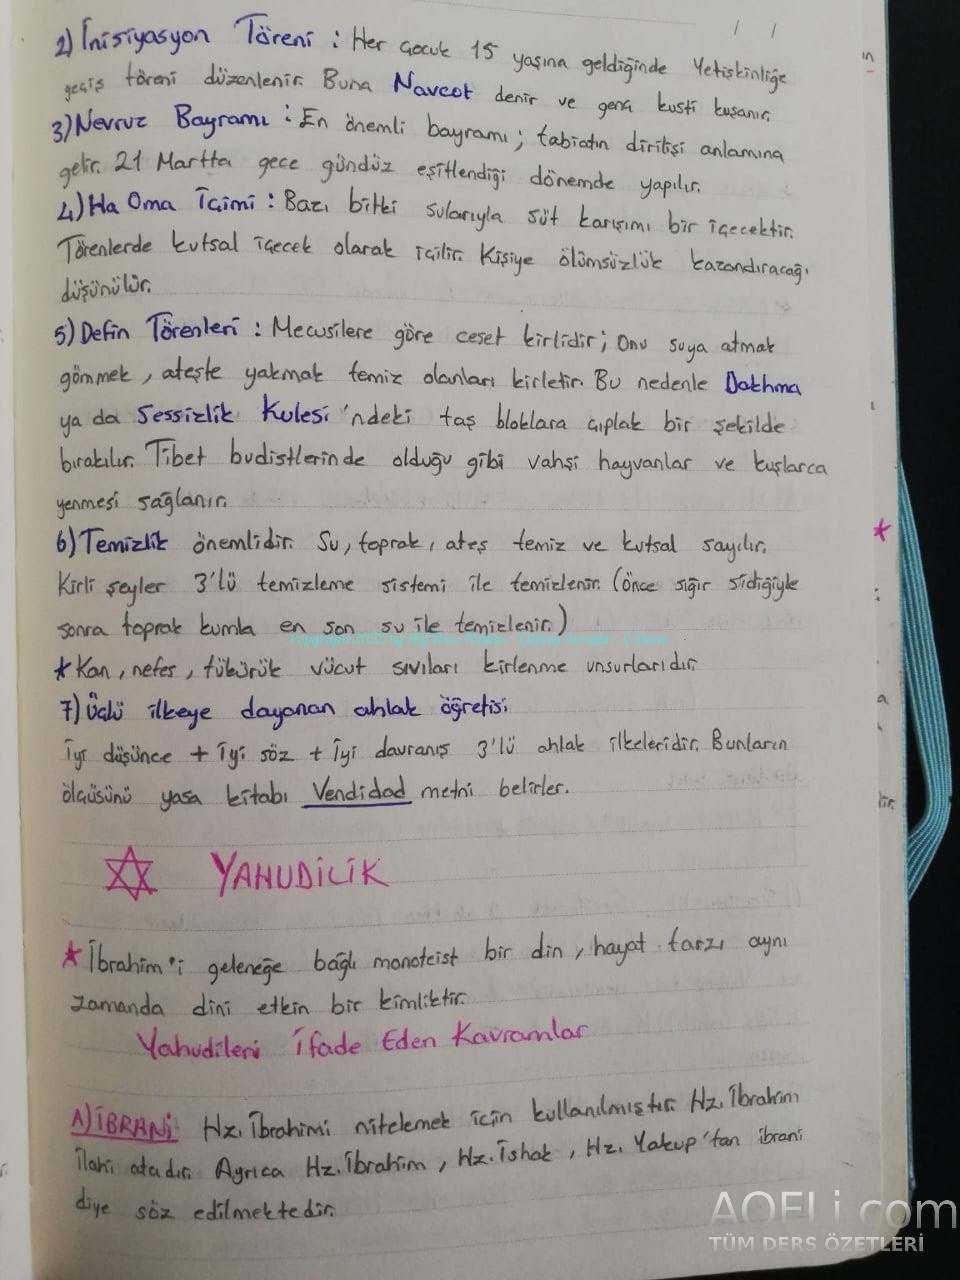 2) İnisiyasyon Töreni : Her çocuk 15 yaşına geldiğinde Yetişkinliğe
geçiş töreni düzenlenir. Buna Navcot denir ve gena kusti kuşanır.
3) Nevruz Bayramı : En önemli bayramı ; tabiatın dirilişi anlamına
gelir. 21 Martta gece gündüz eşitlendiği dönemde yapılır.
4) Ha Oma İçimi : Bazı bitki sularıyla süt karışımı bir içecektir.
Törenlerde kutsal içecek olarak içilir. Kişiye ölümsüzlük kazandıracağı
düşünülür.
5) Defin Törenleri : Mecusilere göre ceset kirlidir ; Onu suya atmak
gömmek , ateşte yakmak temiz olanları kirletir. Bu nedenle Dakhma
ya da Sessizlik Kulesi 'ndeki taş bloklara çıplak bir şekilde
bırakılır. Tibet budistlerinde olduğu gibi vahşi hayvanlar ve kuşlarca
yenmesi sağlanır.
6) Temizlik önemlidir. Su , toprak , ateş temiz ve kutsal sayılır.
Kirli şeyler 3'lü temizleme sistemi ile temizlenir. (önce sığır sidiğiyle
sonra toprak kumla en son su ile temizlenir.)
* Kan , nefes , tükürük vücut sıvıları kirlenme unsurlarıdır
7) Üçlü ilkeye dayanan ahlak öğretisi
İyi düşünce + İyi söz + İyi davranış 3'lü ahlak ilkeleridir. Bunların
ölçüsünü yasa kitabı Vendidad metni belirler.
YAHUDİLİK
* İbrahim'i geleneğe bağlı monoteist bir din , hayat tarzı aynı
zamanda dini etkin bir kimliktir.
Yahudileri İfade Eden Kavramlar
A) İBRANİ Hz. İbrahimi nitelemek için kullanılmıştır. Hz. İbrahim
ilahi atadır. Ayrıca Hz. İbrahim , Hz. İshak , Hz. Yakup'tan ibrani
diye söz edilmektedir.
AOFLi com
TÜM DERS ÖZETLERİ